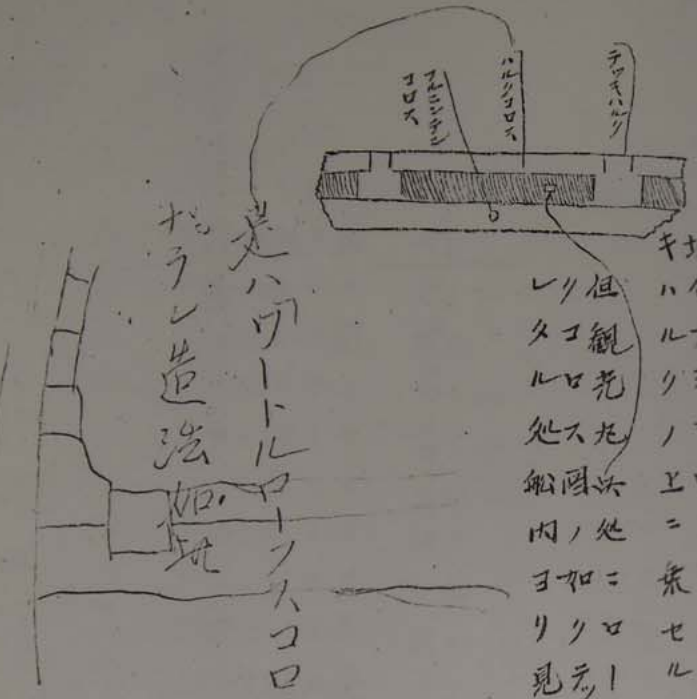 テツキハルク
ハルクコロス
コロス
キハルクノ上ニ乗セル
但観光丸此処ニロー
リコロス図ノ如クテッ
レタル処船内ヨリ見
是ハワートルローフスコロ
ラン造法如此